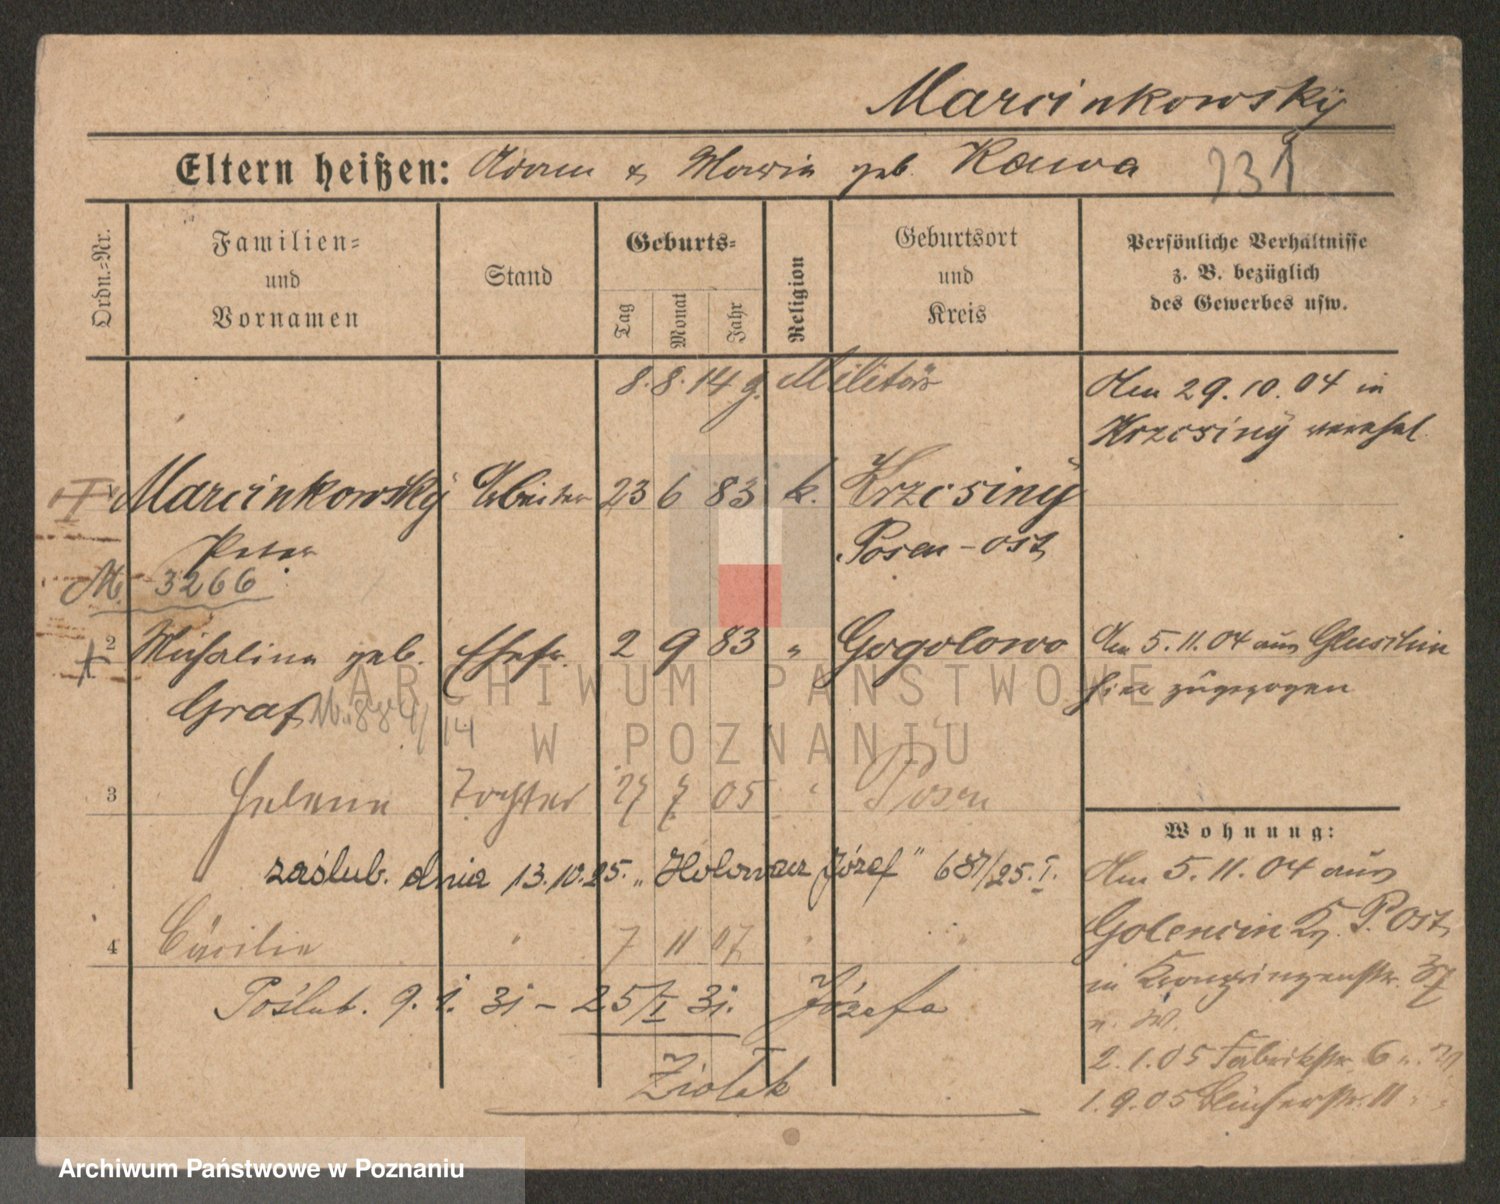 Marcinkowský
Eltern heißen: Adam & Maria geb. Kawa
231
Ordn.-Nr.
Familien-
und
Vornamen
Stand
Geburts-
Tag
Monat
Jahr
Religion
Geburtsort
und
Kreis
Persönliche Verhältnisse
z. B. bezüglich
des Gewerbes usw.
8. 8. 14 g. Militär
Am 29.10.04 in
Krzesiny verehel.
Marcinkowský Arbeiter 23 6 83 k. Krzesiný
Peter Posen-ost
M. 3266
2 Michalina geb. Ehefr. 2 9 83 " Gogolowo
Graf
14
Am 5.11.04 aus
hier zugezogen
3 Helene Tochter 27 7 05 " Posen
zaślub. dnia 13.10.25. „Holowacz Józef" 687/25.I.
4 Cäcilie " 7 11 07 "
Poślub. 9. 1. 31 - 25/I 31. Józefa
Ziołek
Wohnung:
Am 5.11.04 aus
Golencin Kr. P. Ost
in Kronprinzenstr. 37
n. W.
2.1.05 Fabrikstr. 6 n. W.
1.9.05 Blücherstr. 11 " "
ARCHIWUM PAŃSTWOWE
W POZNANIU
Archiwum Państwowe w Poznaniu